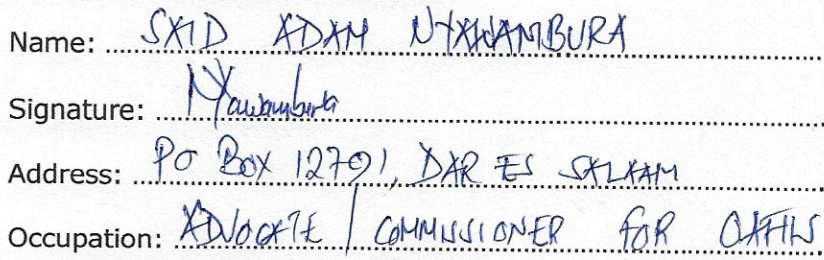 Name: SAID ADAM NYAWAMBURA
Signature: Nyawambura
Address: PO BOX 12791, DAR ES SALAAM
Occupation: ADVOCATE / COMMISSIONER FOR OATHS